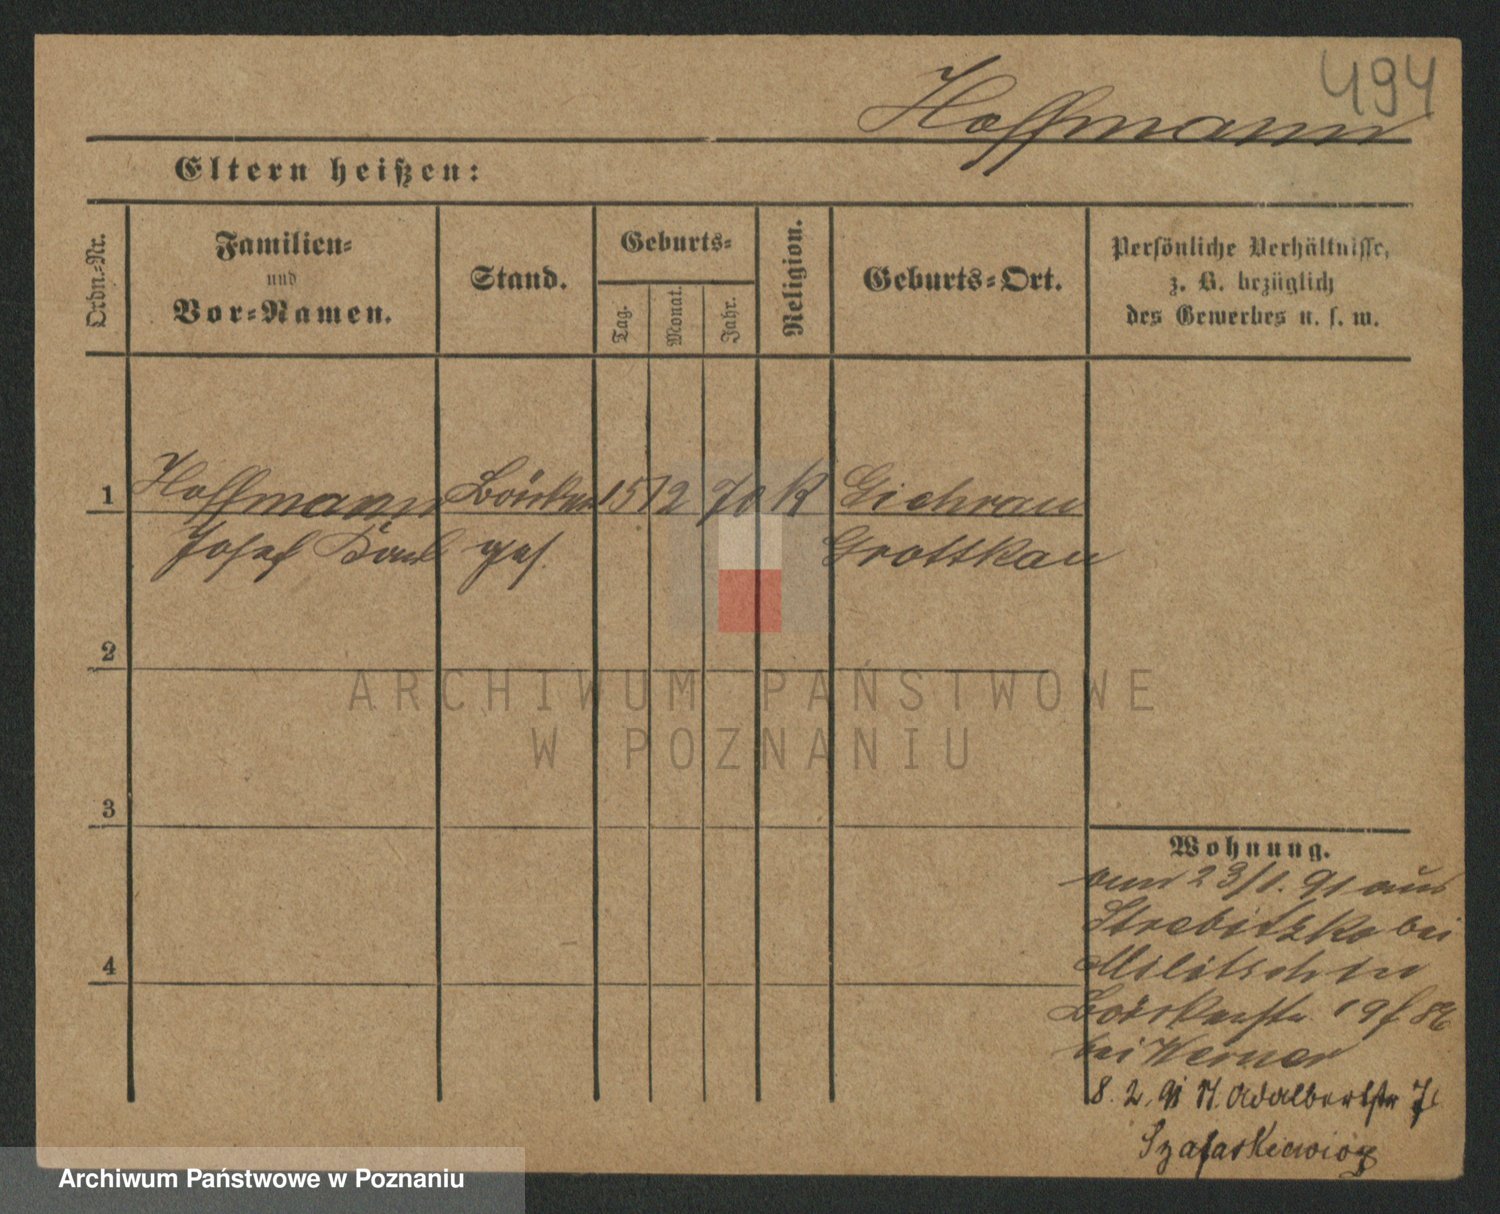 494
Hoffmann
Eltern heißen:
Ordn.-Nr.
Familien-
und
Vor-Namen.
Stand.
Geburts-
Tag.
Monat.
Jahr.
Religion.
Geburts-Ort.
Persönliche Verhältnisse,
z. B. bezüglich
des Gewerbes u. s. w.
1 Hoffmann Bäcker 15 12 70 K Giehrau
Josef Karl ges. Grottkau
2
3
4
ARCHIWUM PAŃSTWOWE
W POZNANIU
Wohnung.
am 23/1. 91 aus
Strebitzko bei
Militsch in
Bäckerstr. 19
bei Werner
8. 2. 91 Adalbertstr 7
Archiwum Państwowe w Poznaniu